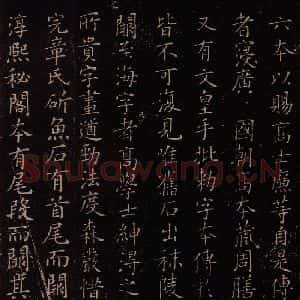 六本以賜高士廉等自是傳
者寖廣 國朝寫本藏周膳
又有文皇手批勑字本傳
皆不可復見唯舊石出秣陵
闕至海字者高學士紳得之
所貴字畫遒勁法度森嚴惜
完章氏斫魚石有首尾而闕
淳熙秘閣本有尾段而闕其
Shufawang.CN